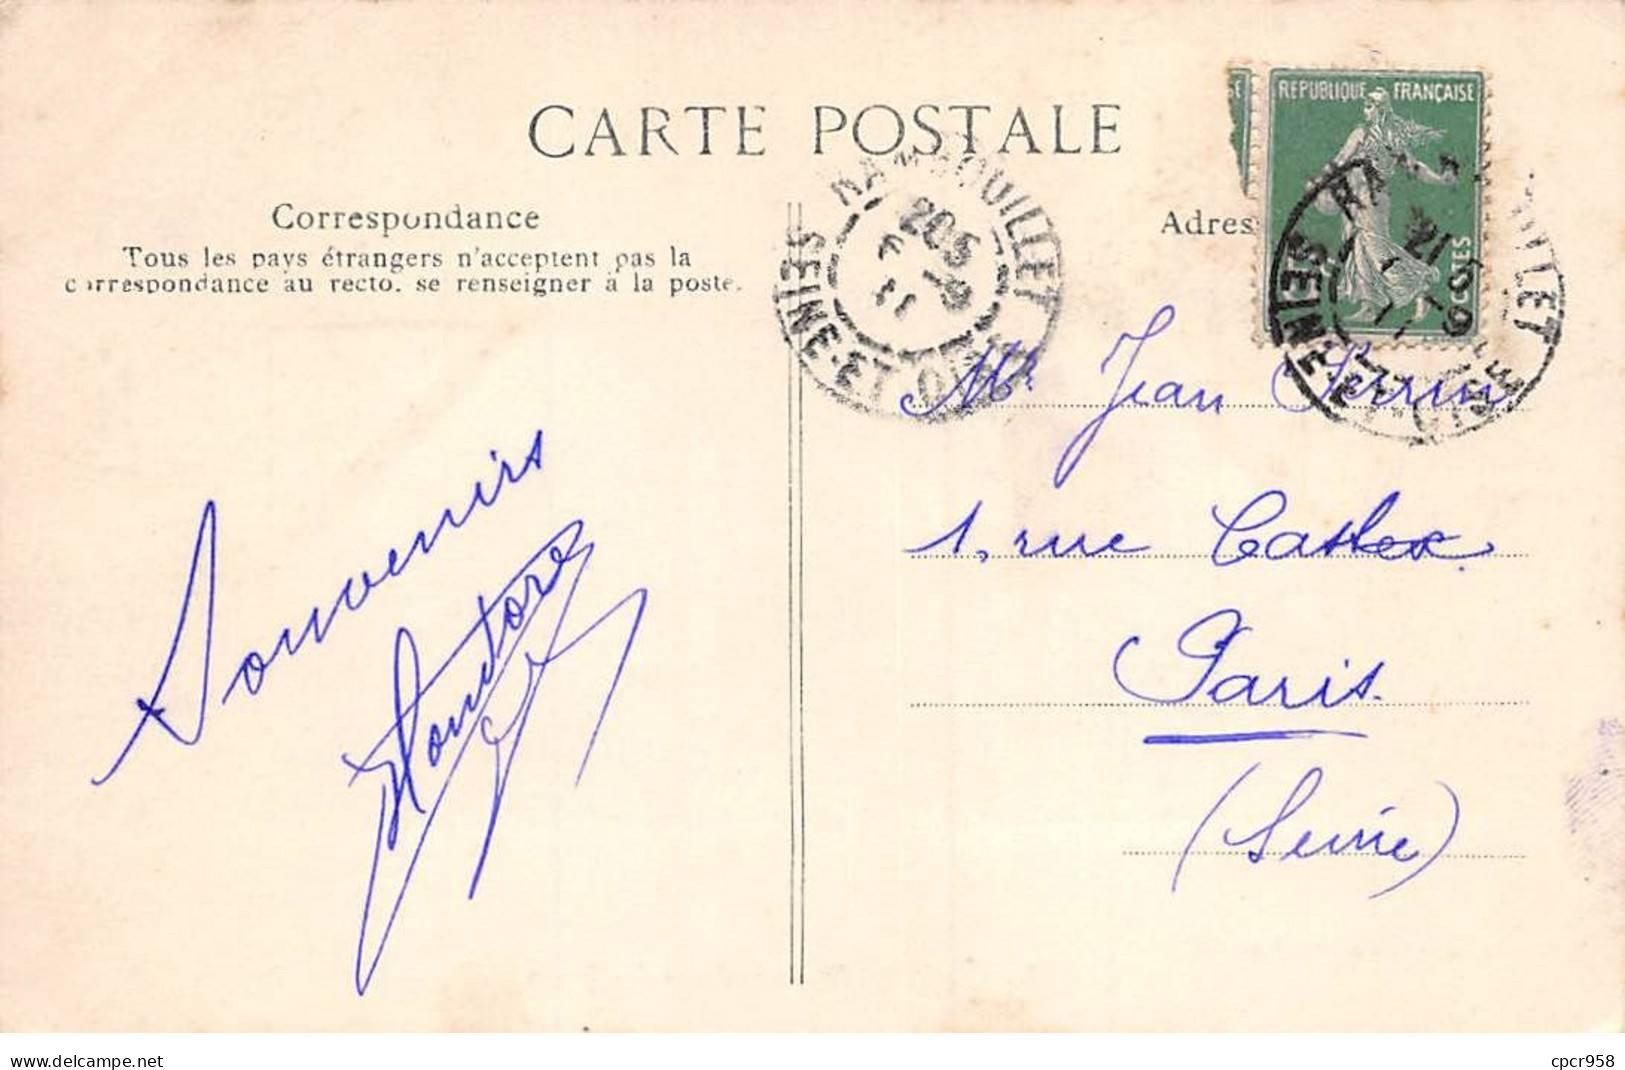 CARTE POSTALE
Correspondance
Tous les pays étrangers n'acceptent pas la
correspondance au recto. se renseigner à la poste.
Adres
REPUBLIQUE FRANÇAISE
RAMBOUILLET
20 5
SEINE-ET-OISE
Souvenirs
Mr Jean Perrin
1, rue
Paris.
(Seine)
www.delcampe.net
cpcr958